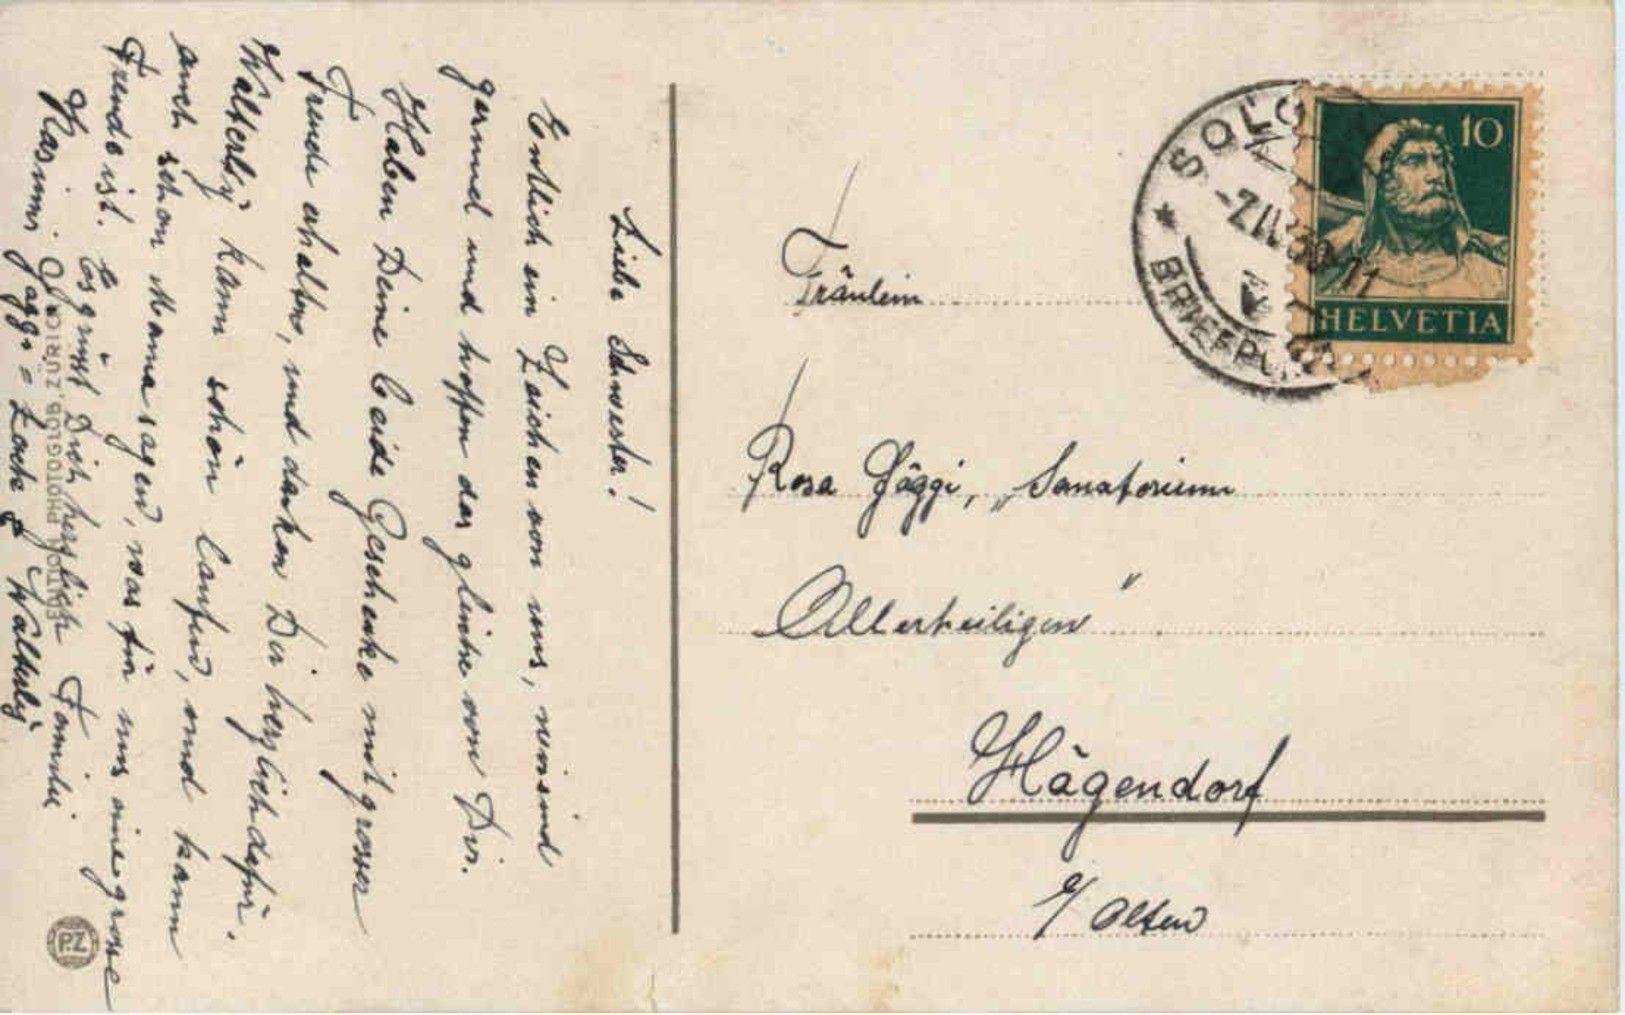 Liebe Schwester!
Entlich ein Zeichen von uns, wir sind
gesund und hoffen das gleiche von Dir.
Haben Deine beide Geschenke mit grosser
Freude erhalten, und danken Dir herzlich dafür.
Walterlÿ kann schön laufen, und kann
auch schon Mama sagen, was für uns eine grosse
Freude ist. Es grüsst Dich herzlich Familie
Kasimir Jäggi = Walterlÿ
EDITION PHOTOGLOB, ZURICH
PZ
SOLO
BRIEFPO
10
HELVETIA
Fräulein
Rosa Jäggi, „Sanatorium
Allerheiligen"
Hägendorf
b/ Olten